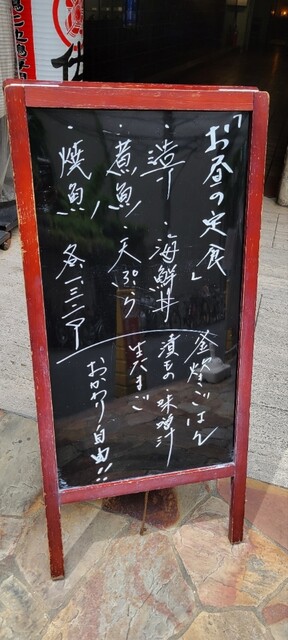 「お昼の定食」
・造り ・海鮮丼
・煮魚 ・天ぷら
・焼魚 各
釜炊ごはん
漬もの 味噌汁
生たまご
おかわり自由!!